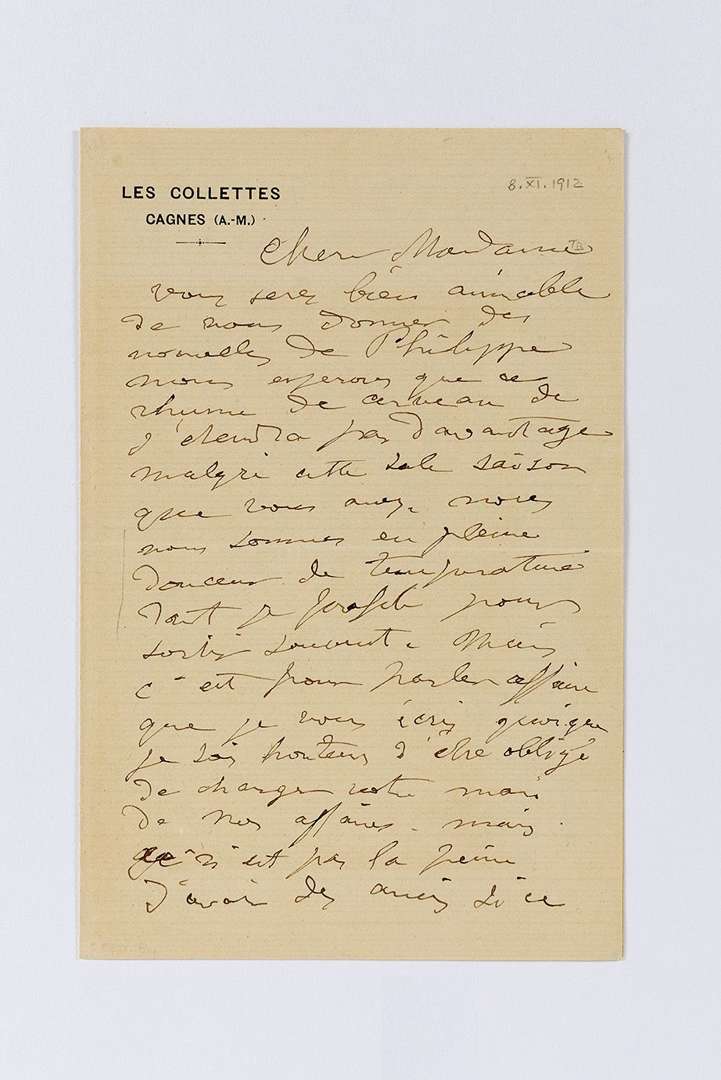 LES COLLETTES
CAGNES (A.-M.)
8.XI.1912
TB
Chere Madame
vous serez bien aimable
de nous donner des
nouvelles de Philippe
nous esperons que ce
rhume de cerveau ne
s'etendra pas davantage
malgré cette sale saison
que vous avez. nous
nous sommes en pleine
douceur de temperature
dont je profite pour
sortir souvent. Mais
c'est pour parler affaire
que je vous écris quoique
je sois honteux d'être obligé
de charger votre mari
de nos affaires. mais
ce n'est pas la peine
d'avoir des amis si ce